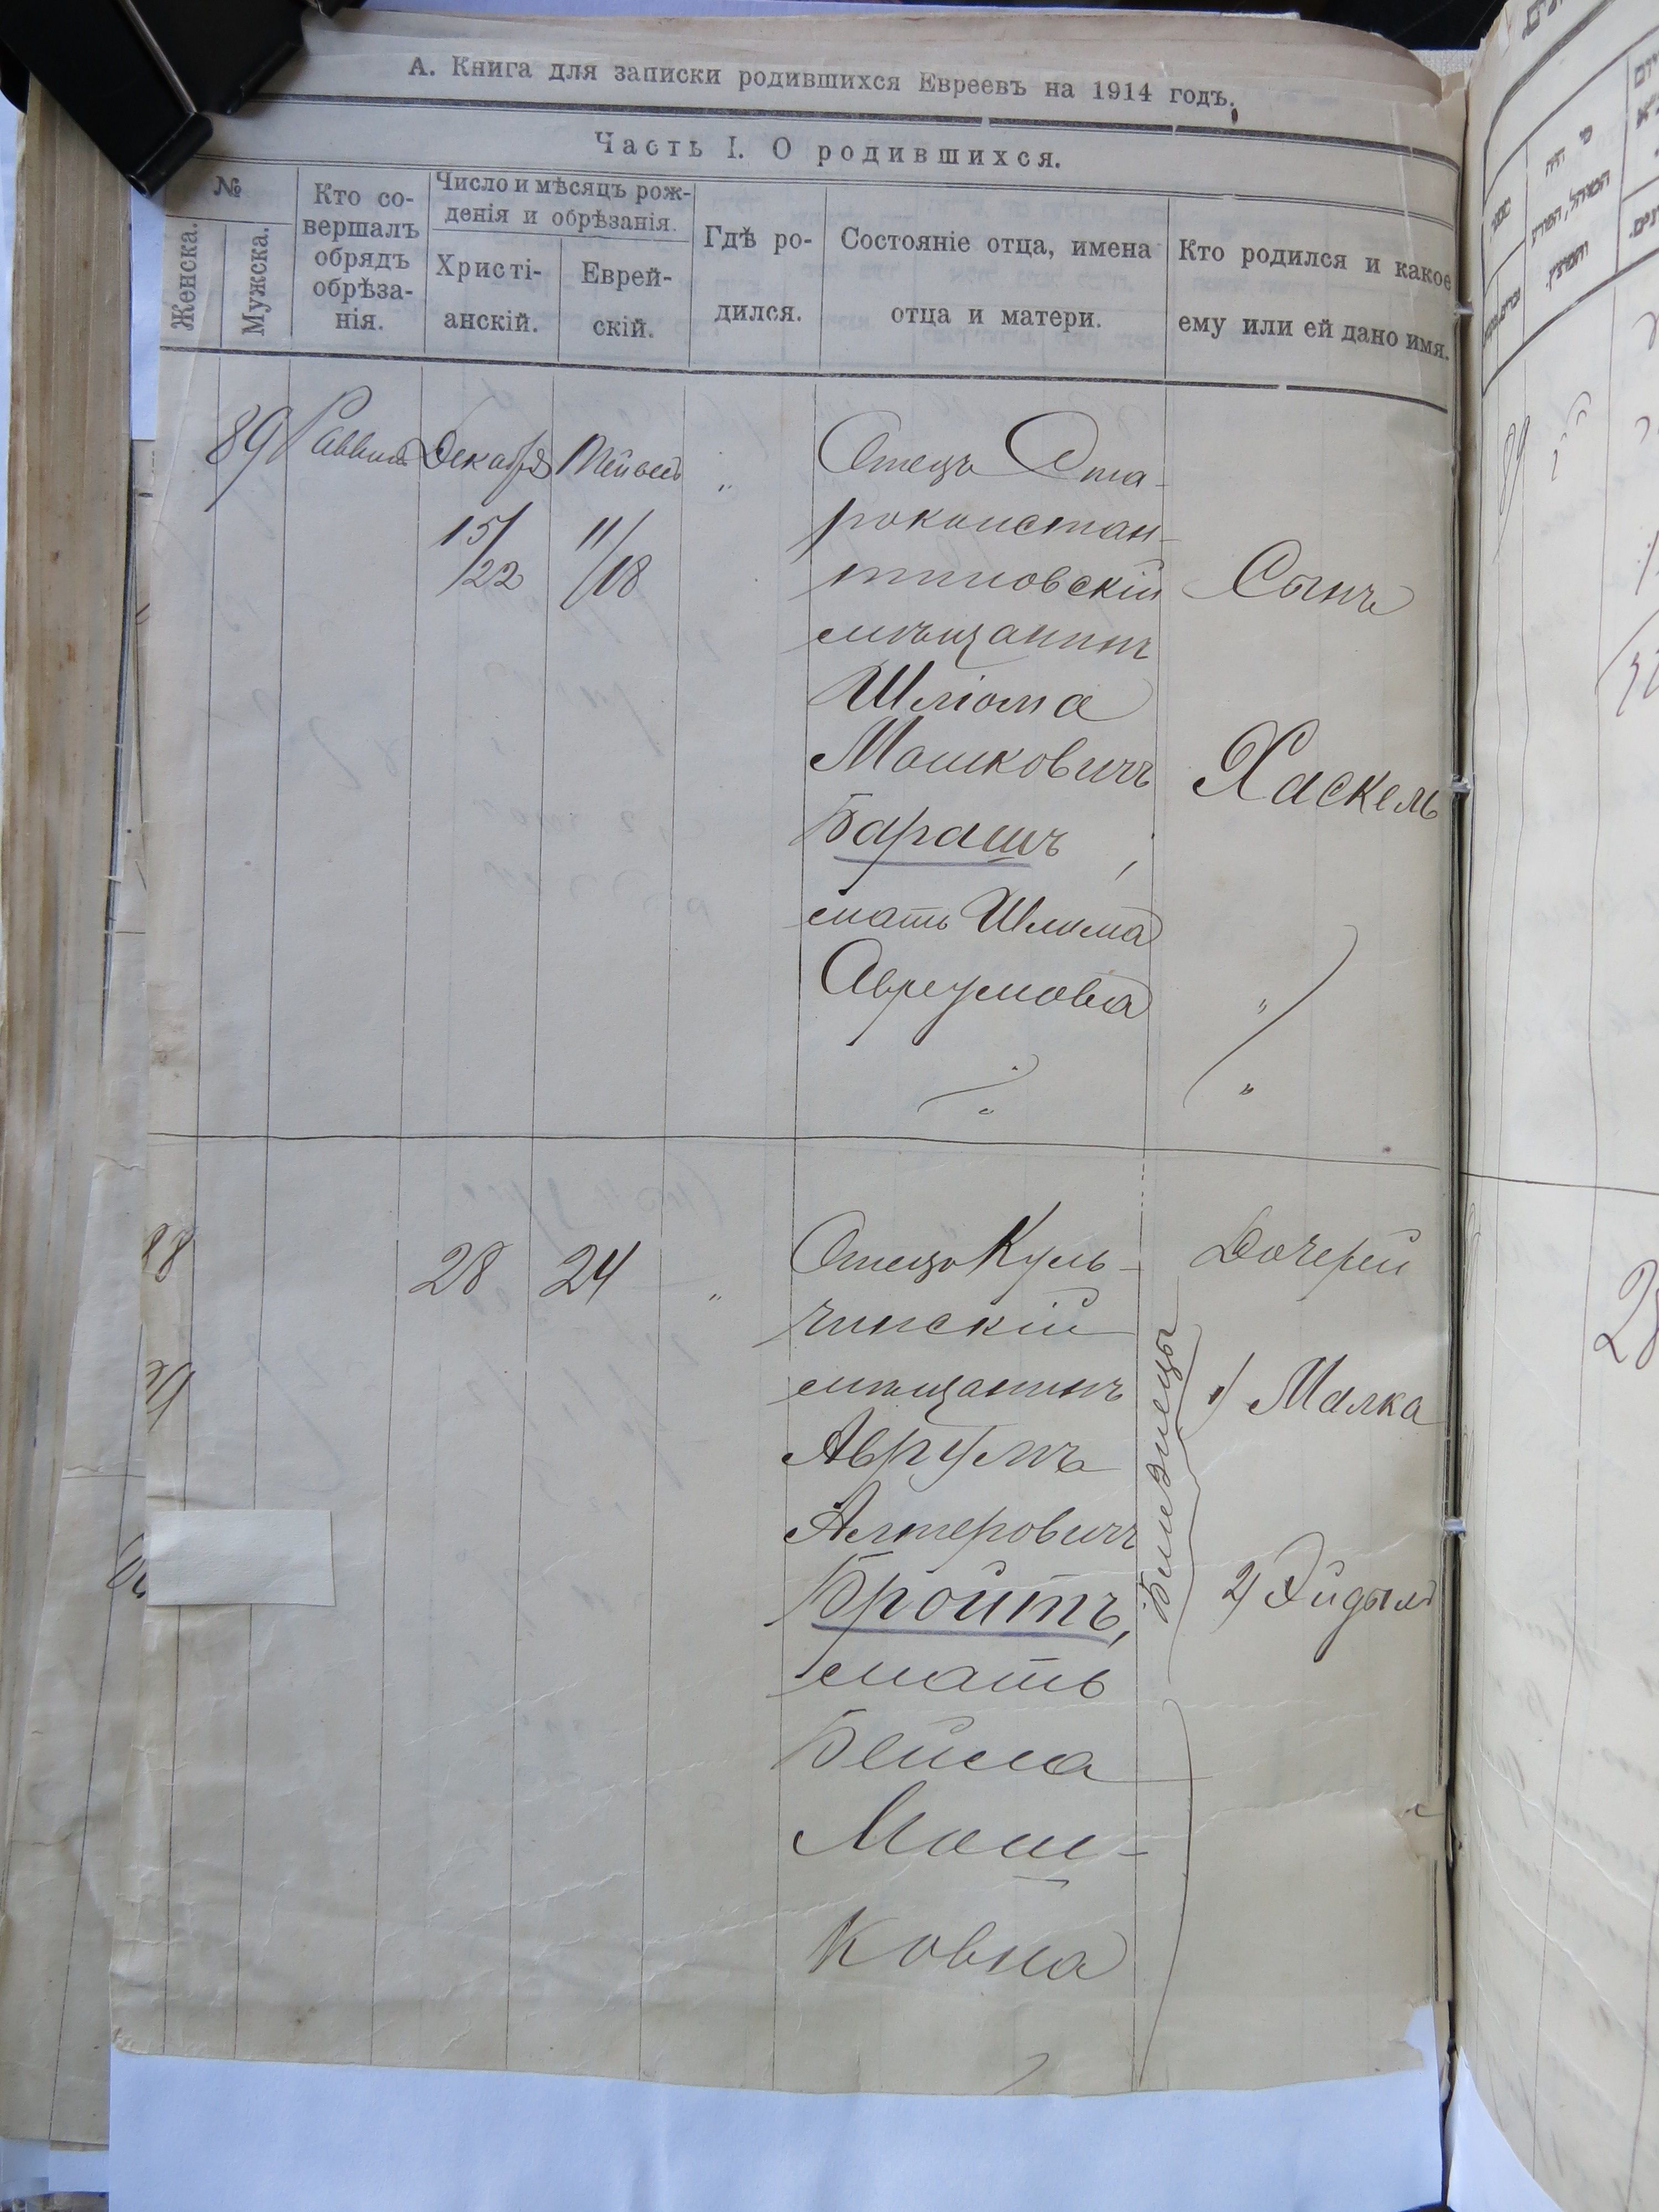 А. Книга для записки родившихся Евреевъ на 1914 годъ.
Часть I. О родившихся.
№
Женска.
Мужска.
Кто со-
вершалъ
обрядъ
обрѣза-
нія.
Число и мѣсяцъ рож-
денія и обрѣзанія.
Христі-
анскій.
Еврей-
скій.
Гдѣ ро-
дился.
Состояніе отца, имена
отца и матери.
Кто родился и какое
ему или ей дано имя.
89
Декабря
15/22
11/18
"
Отецъ Ста-
роконстан-
тиновскій
мѣщанинъ
Шліома
Мошковичъ
Барашъ,
мать
Авремовна
Сынъ
Хаскель
28
24
"
Отецъ Куль-
чинскій
мѣщанинъ
Аврумъ
Алтеровичъ
Бройтъ,
мать
Бейла
Мош-
ковна
Близнецы
Дочерей
1) Малка
2) Эйдыль
89